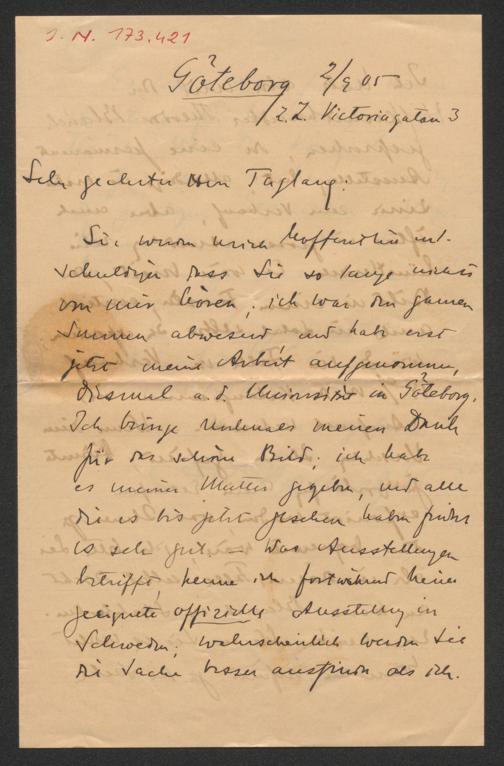 I.N. 173.421
Göteborg 2/9 05
z.Z. Victoriagatan 3
Sehr geehrter Herr Taglang!
Sie werden mich hoffentlich ent-
schuldigen dass Sie so lange nichts
von mir hören; ich war den ganzen
Sommer abwesend und habe erst
jetzt meine Arbeit aufgenommen,
diesmal a. d. Universität in Göteborg.
Ich bringe nochmals meinen Dank
für das schöne Bild; ich habe
es meiner Mutter gegeben, und alle
die es bis jetzt gesehen haben finden
es sehr gut. – Was Ausstellungen
betrifft, kenne ich fortwährend keine
geeignete offizielle Ausstellung in
Schweden; wahrscheinlich werden Sie
die Sache besser ausfinden als ich.